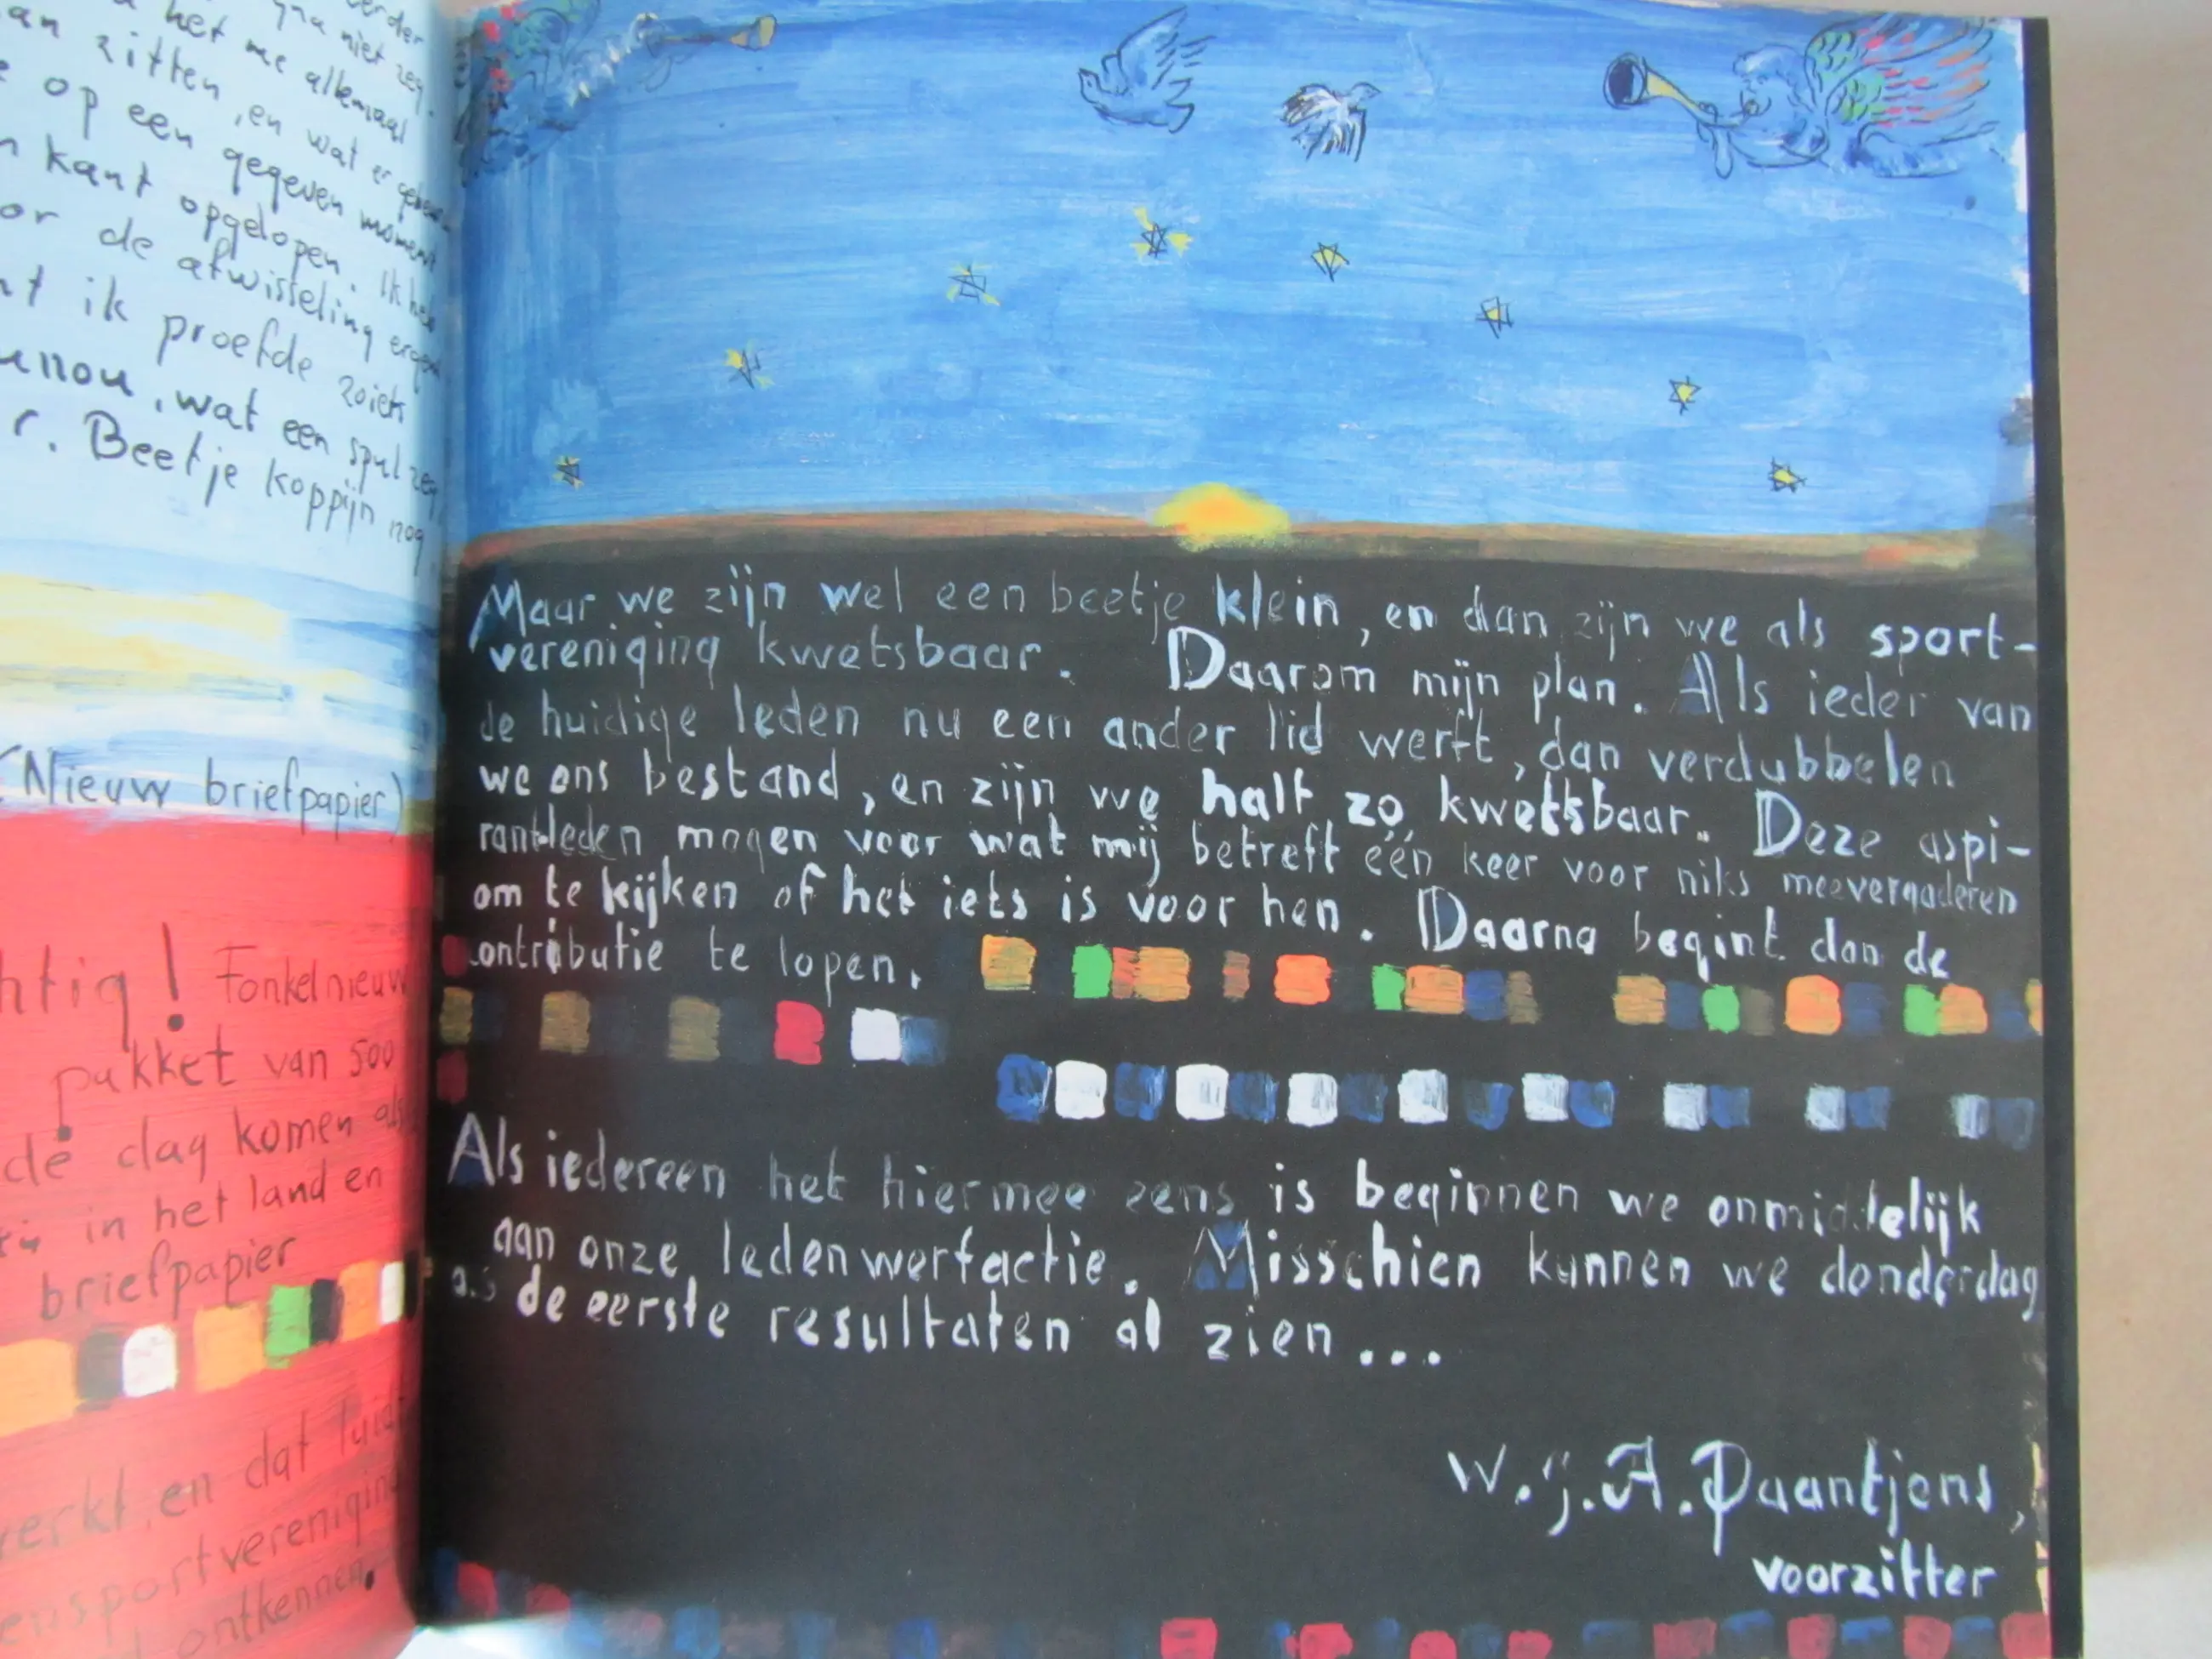 verder
gna niet zeg.
het me allemaal
an zitten, en wat er
op een gegeven moment
kant opgelopen. Ik heb
or de afwisseling
ik proefde zoiets
, wat een spul zeg,
r. Beetje koppijn nog
(Nieuw briefpapier)
htig! Fonkelnieuw
pakket van 500
de dag komen als
in het land en
briefpapier
werkt, en dat luidt
ensportvereniging
ontkennen.
Maar we zijn wel een beetje klein, en dan zijn we als sport-
vereniging kwetsbaar. Daarom mijn plan. Als ieder van
de huidige leden nu een ander lid werft, dan verdubbelen
we ons bestand, en zijn we half zo kwetsbaar. Deze aspi-
rantleden mogen voor wat mij betreft één keer voor niks meevergaderen
om te kijken of het iets is voor hen. Daarna begint dan de
contributie te lopen.
Als iedereen het hiermee eens is beginnen we onmiddelijk
aan onze ledenwerfactie. Misschien kunnen we donderdag
as de eerste resultaten al zien...
W.G.A. Paantjens,
voorzitter